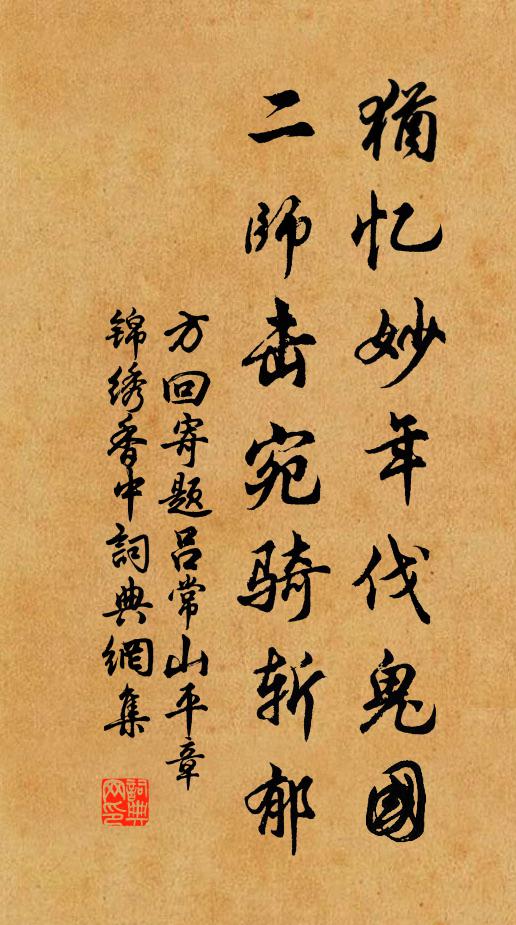 猶忆妙年伐鬼國
二師击宛骑斩郁
方回寄题吕常山平章
锦绣香中詞典網集
詞典网印